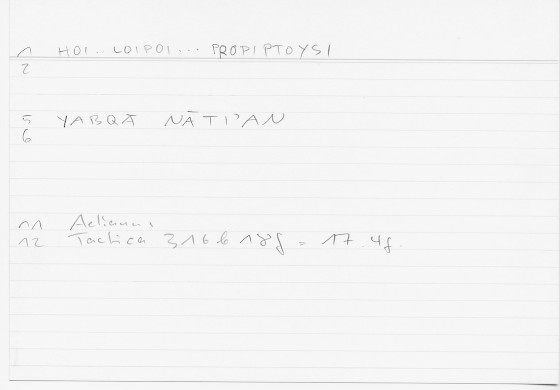 1 HOI.. LOIPOI... PROPIPTOYSI
2
5 YABQĀ NĀTI'AN
6
11 Aelianus,
12 Tactica 316 b 18f = 17.4f.